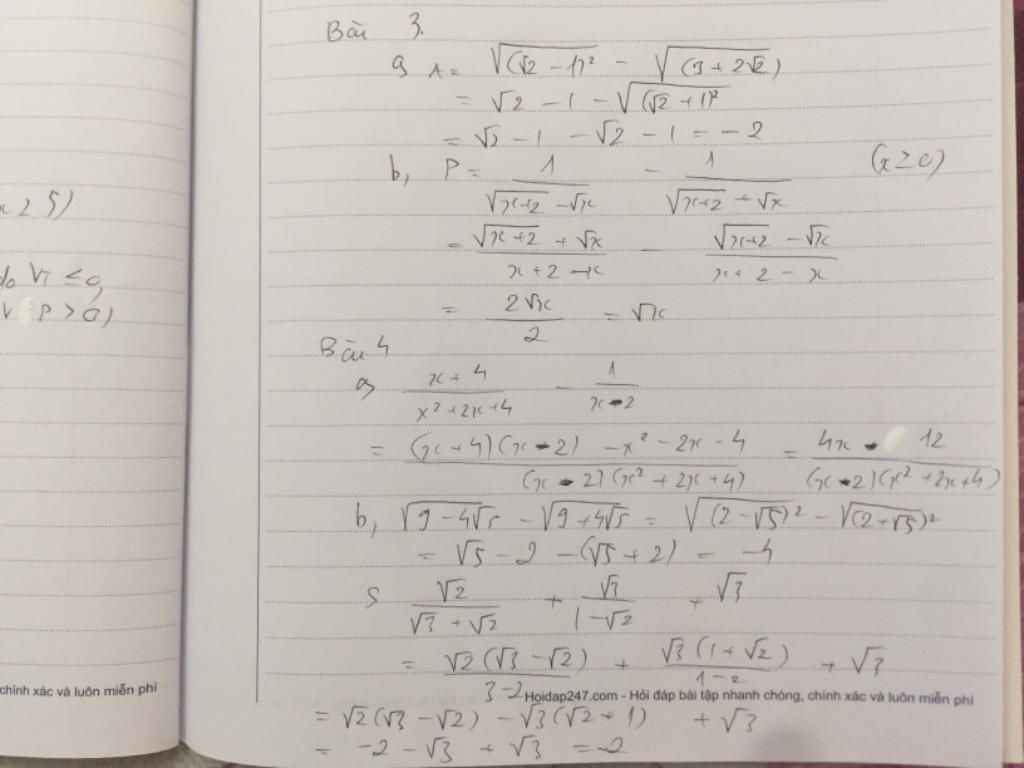 x ≥ 5)
do √x ≤ 0,
P > 0)
chính xác và luôn miễn phí
Bài 3.
a, A = √((√2 - 1)²) - √(3 + 2√2)
= √2 - 1 - √((√2 + 1)²)
= √2 - 1 - √2 - 1 = -2
b, P = 1/(√(x+2) - √x) - 1/(√(x+2) + √x) (x ≥ 0)
= (√(x+2) + √x)/(x + 2 - x) - (√(x+2) - √x)/(x + 2 - x)
= 2√x/2 = √x
Bài 4
a, (x + 4)/(x² + 2x + 4) - 1/(x - 2)
= ((x + 4)(x - 2) - x² - 2x - 4)/((x - 2)(x² + 2x + 4)) = (4x - 12)/((x - 2)(x² + 2x + 4))
b, √(9 - 4√5) - √(9 + 4√5) = √((2 - √5)²) - √((2 + √5)²)
= √5 - 2 - (√5 + 2) = -4
S √2/(√3 + √2) + √3/(1 - √2) + √3
= √2(√3 - √2)/(3 - 2) + √3(1 + √2)/(1 - 2) + √3
Hoidap247.com - Hỏi đáp bài tập nhanh chóng, chính xác và luôn miễn phí
= √2(√3 - √2) - √3(√2 + 1) + √3
= -2 - √3 + √3 = -2